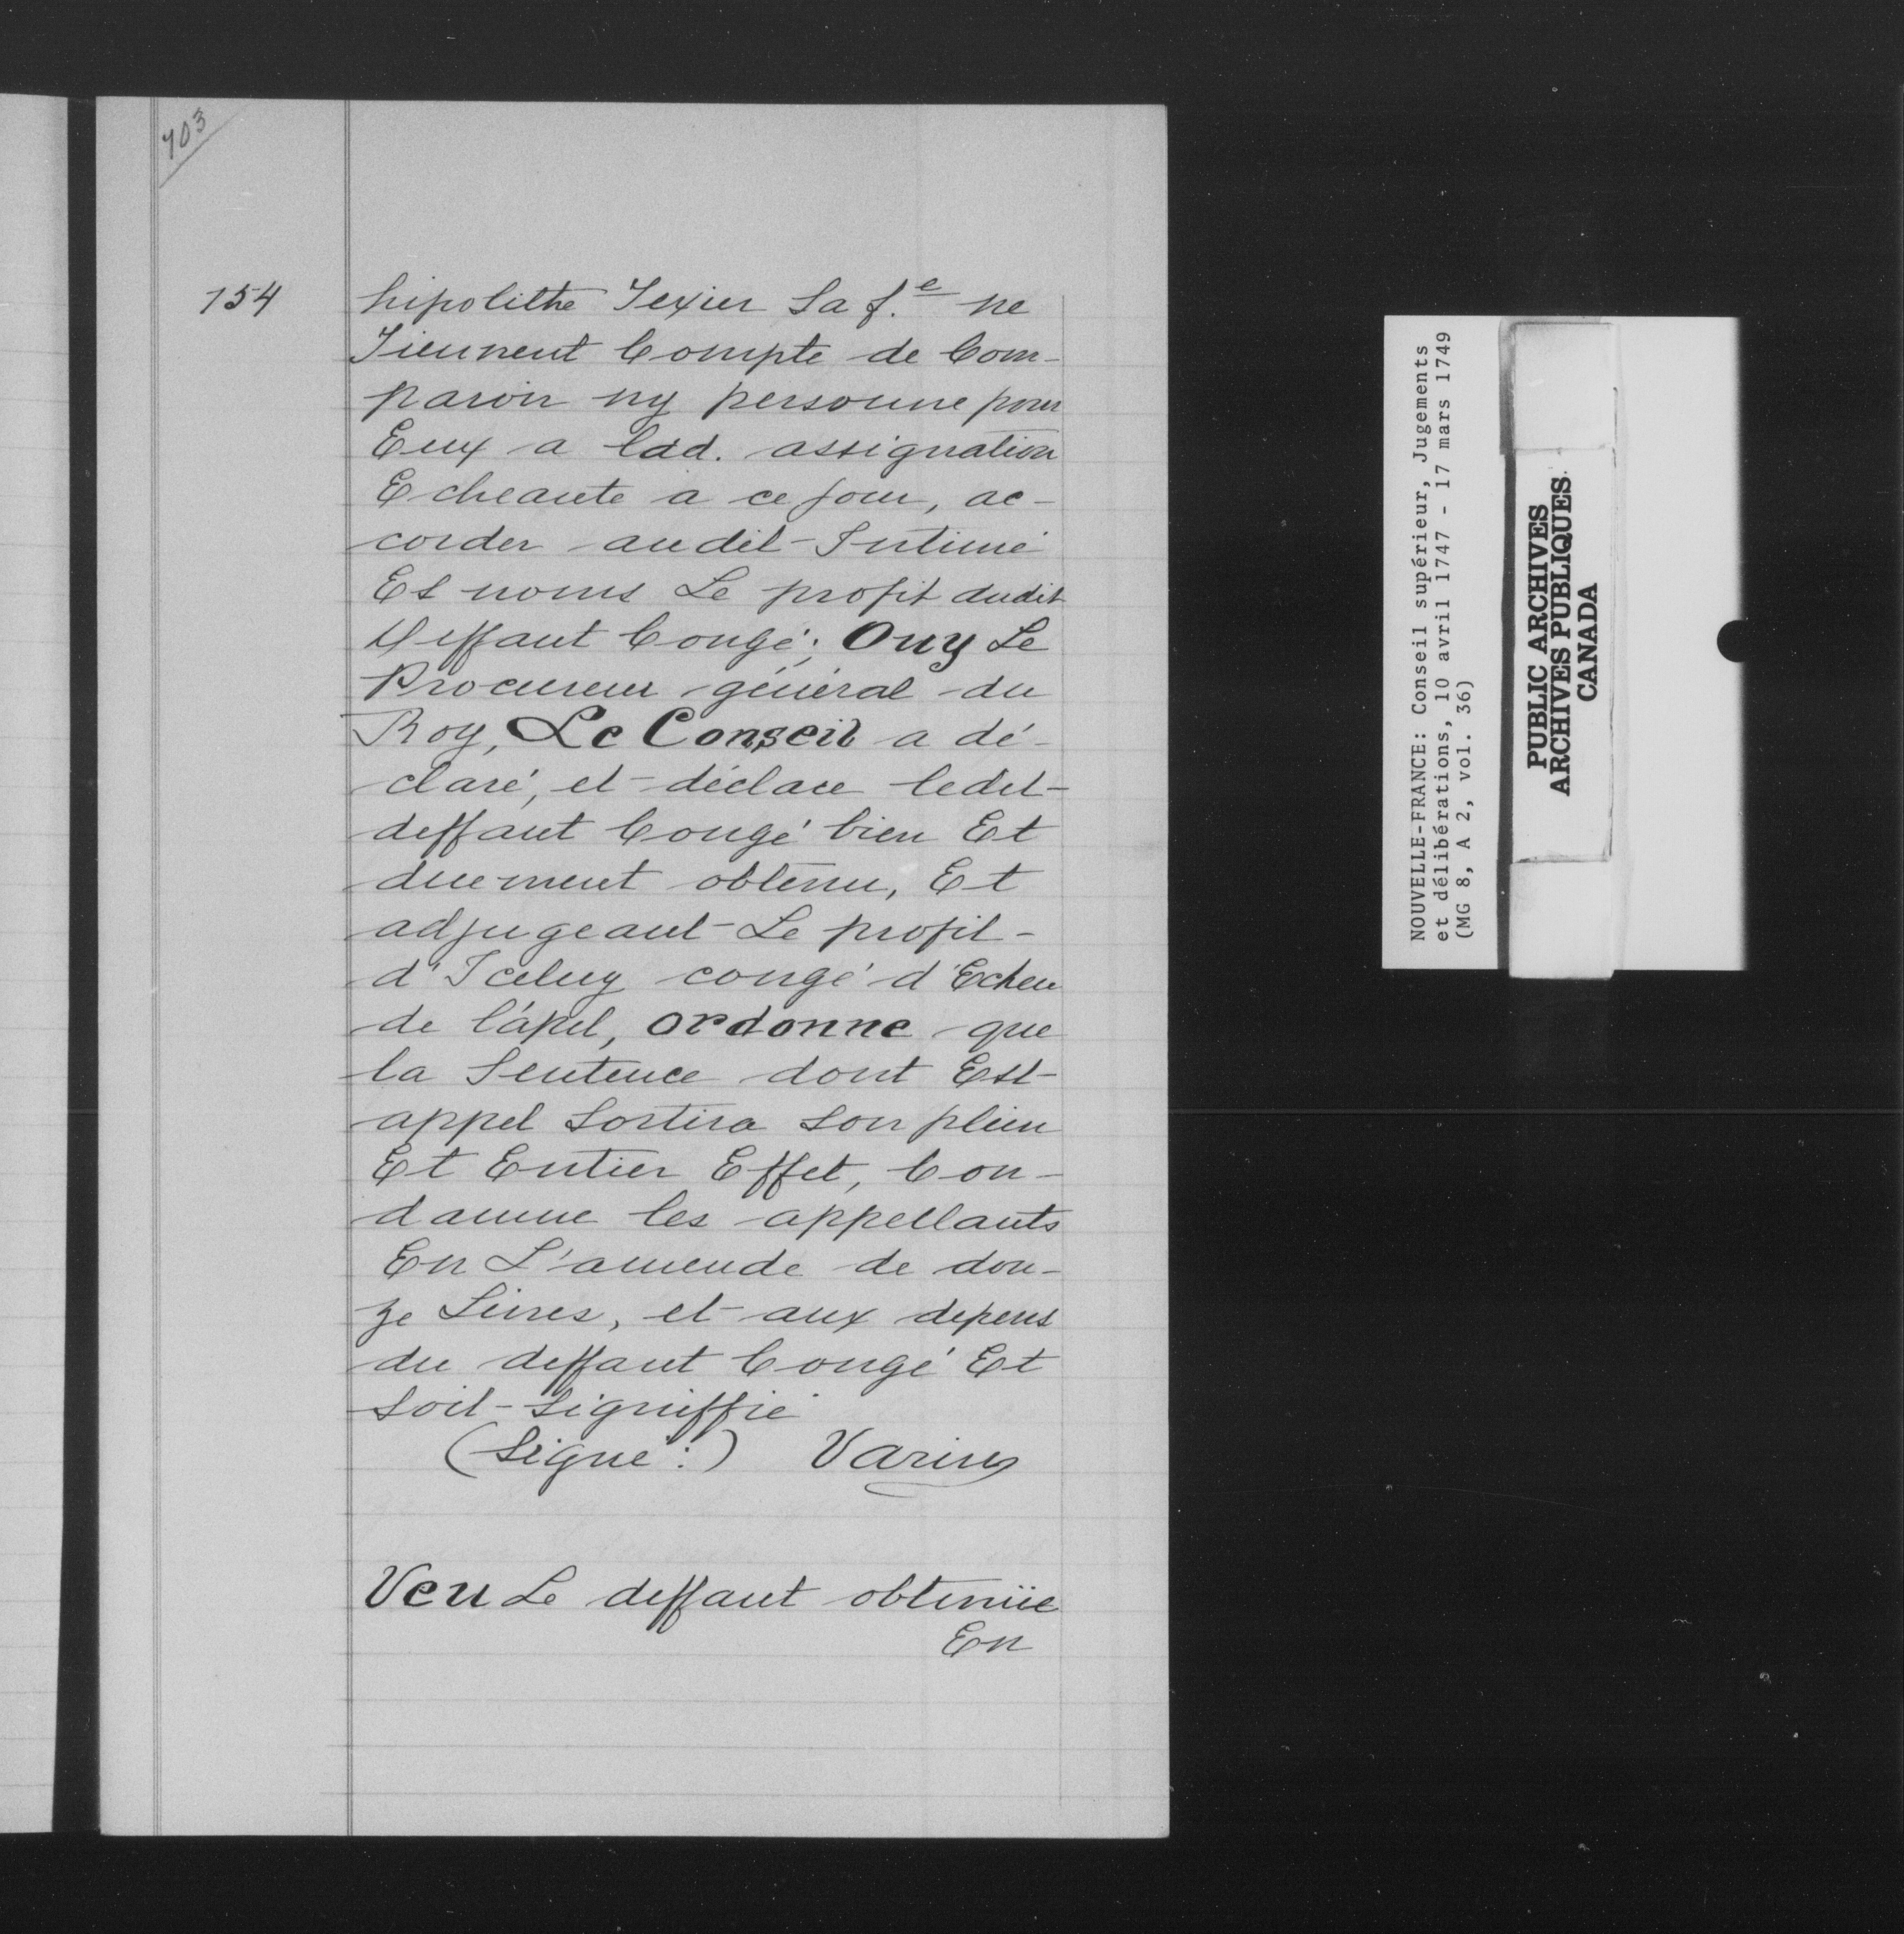 403
154
hipolithe Texier Sa f.e ne
Tiennent Compte de Com-
paroir ny personne pour
Eux a lad. assignation
Echeante a ce jour, ac-
corder audit Intimé
Es noms Le profit dudit
Deffaut Congé; Ouy Le
Procureur général du
Roy, Le Conseil a dé-
claré, et déclare ledit
deffaut Congé bien Et
duement obtenu, Et
adjugeant Le profit
d'Iceluy congé d'Echeu
de l'apel, ordonne que
la Sentence dont Est
appel Sortira Son plein
Et Entier Effet, Con-
damne les appellants
En L'amende de dou-
ze Livres, et aux depens
du deffaut Congé Et
Soit Signiffié
(Signé:) Varin
Veu Le deffaut obtenüe
En
NOUVELLE-FRANCE: Conseil supérieur, Jugements
et délibérations, 10 avril 1747 - 17 mars 1749
(MG 8, A 2, vol. 36)
PUBLIC ARCHIVES
ARCHIVES PUBLIQUES
CANADA